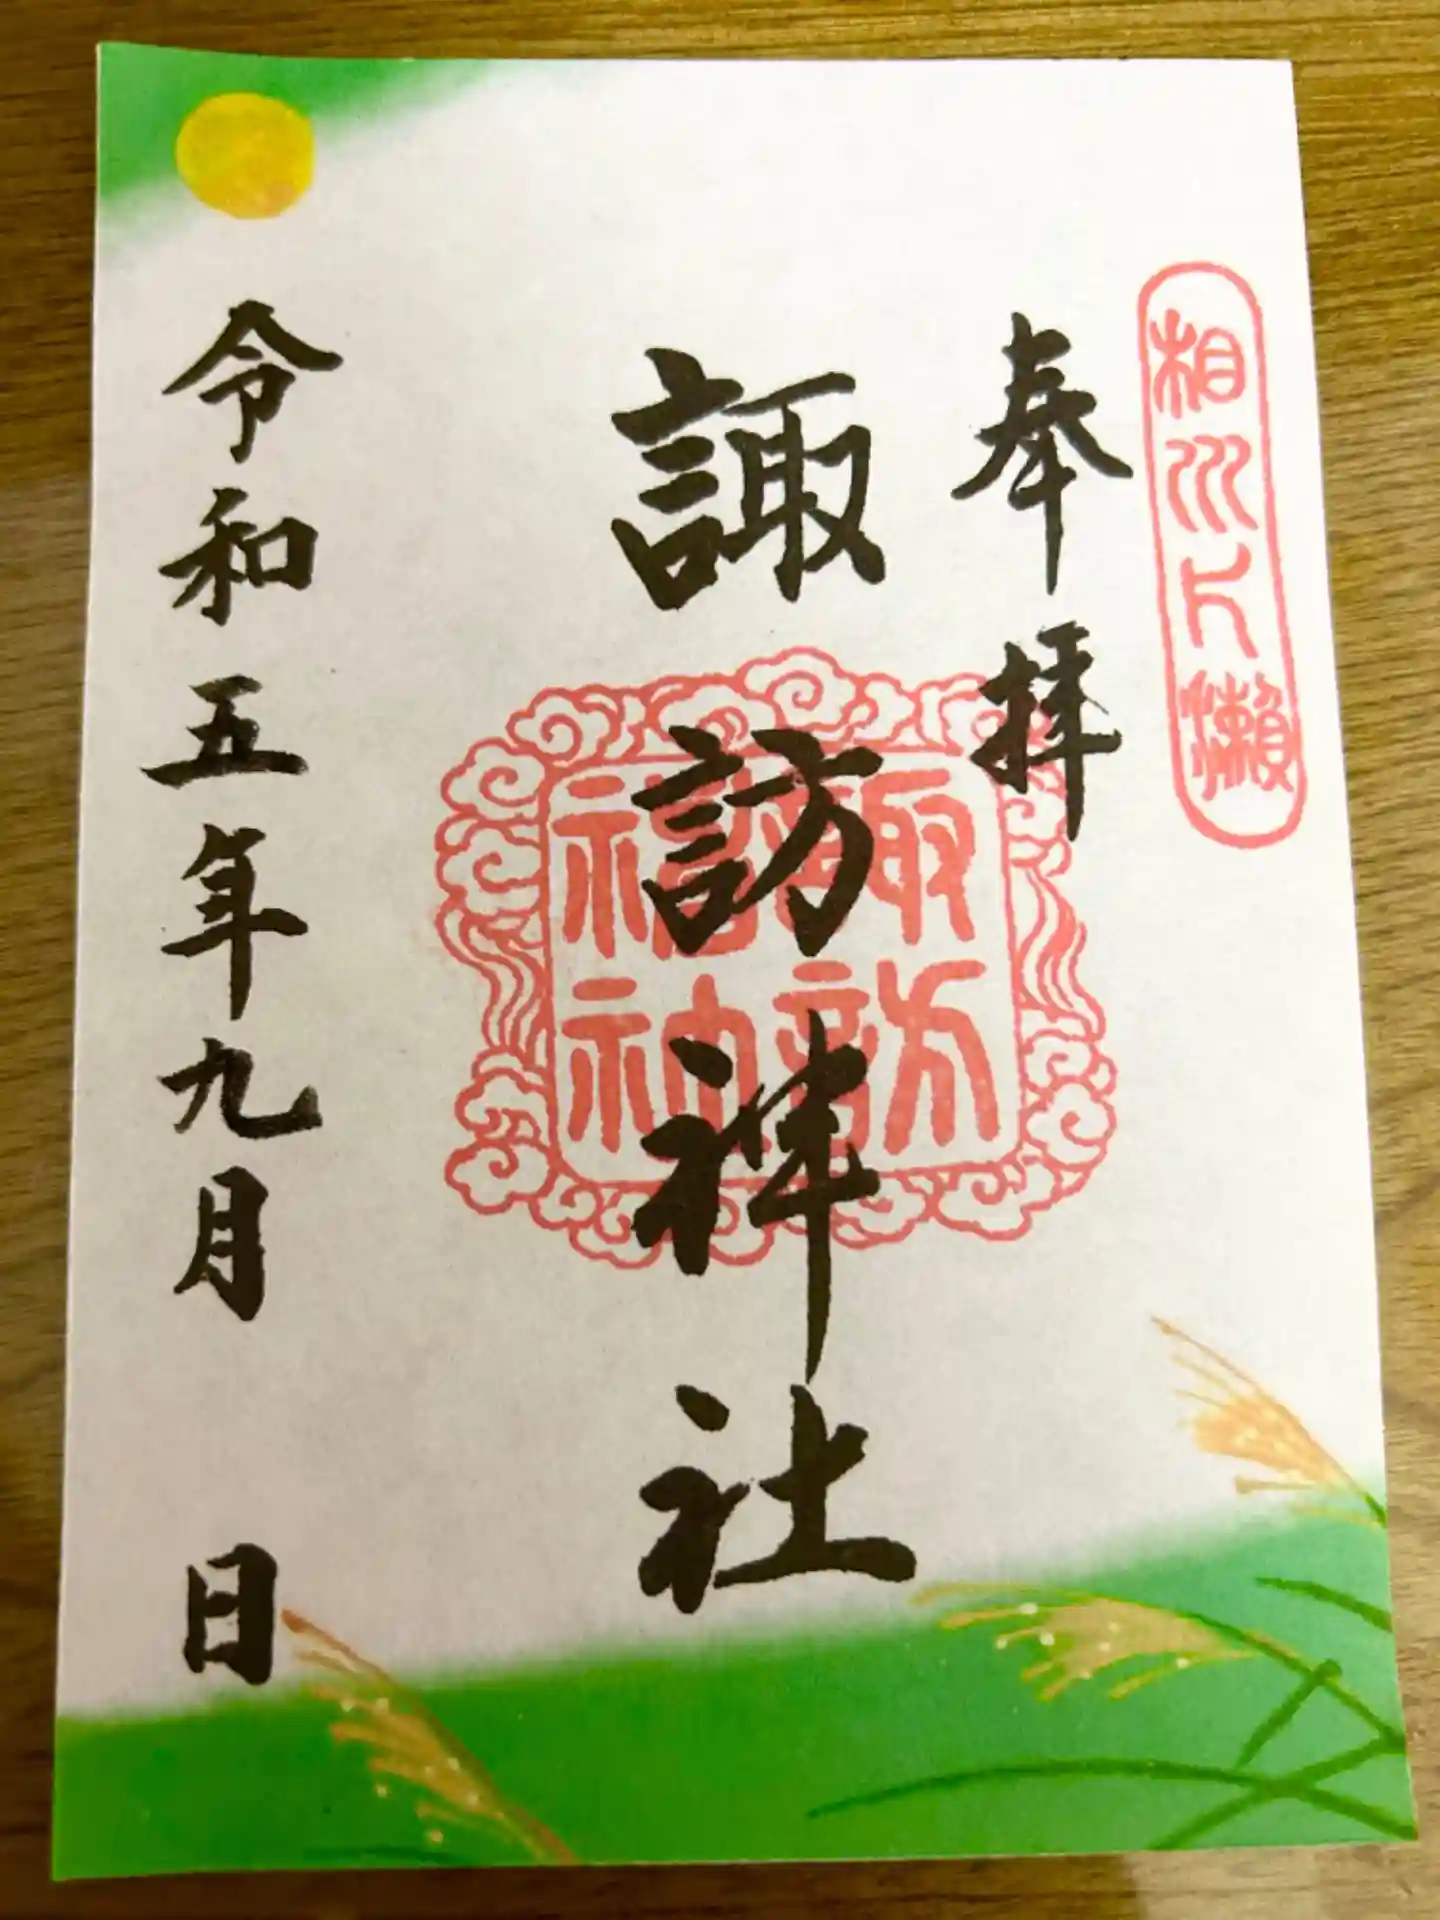 相州片瀬
奉拝
諏訪神社
諏訪
神社
令和五年九月 日